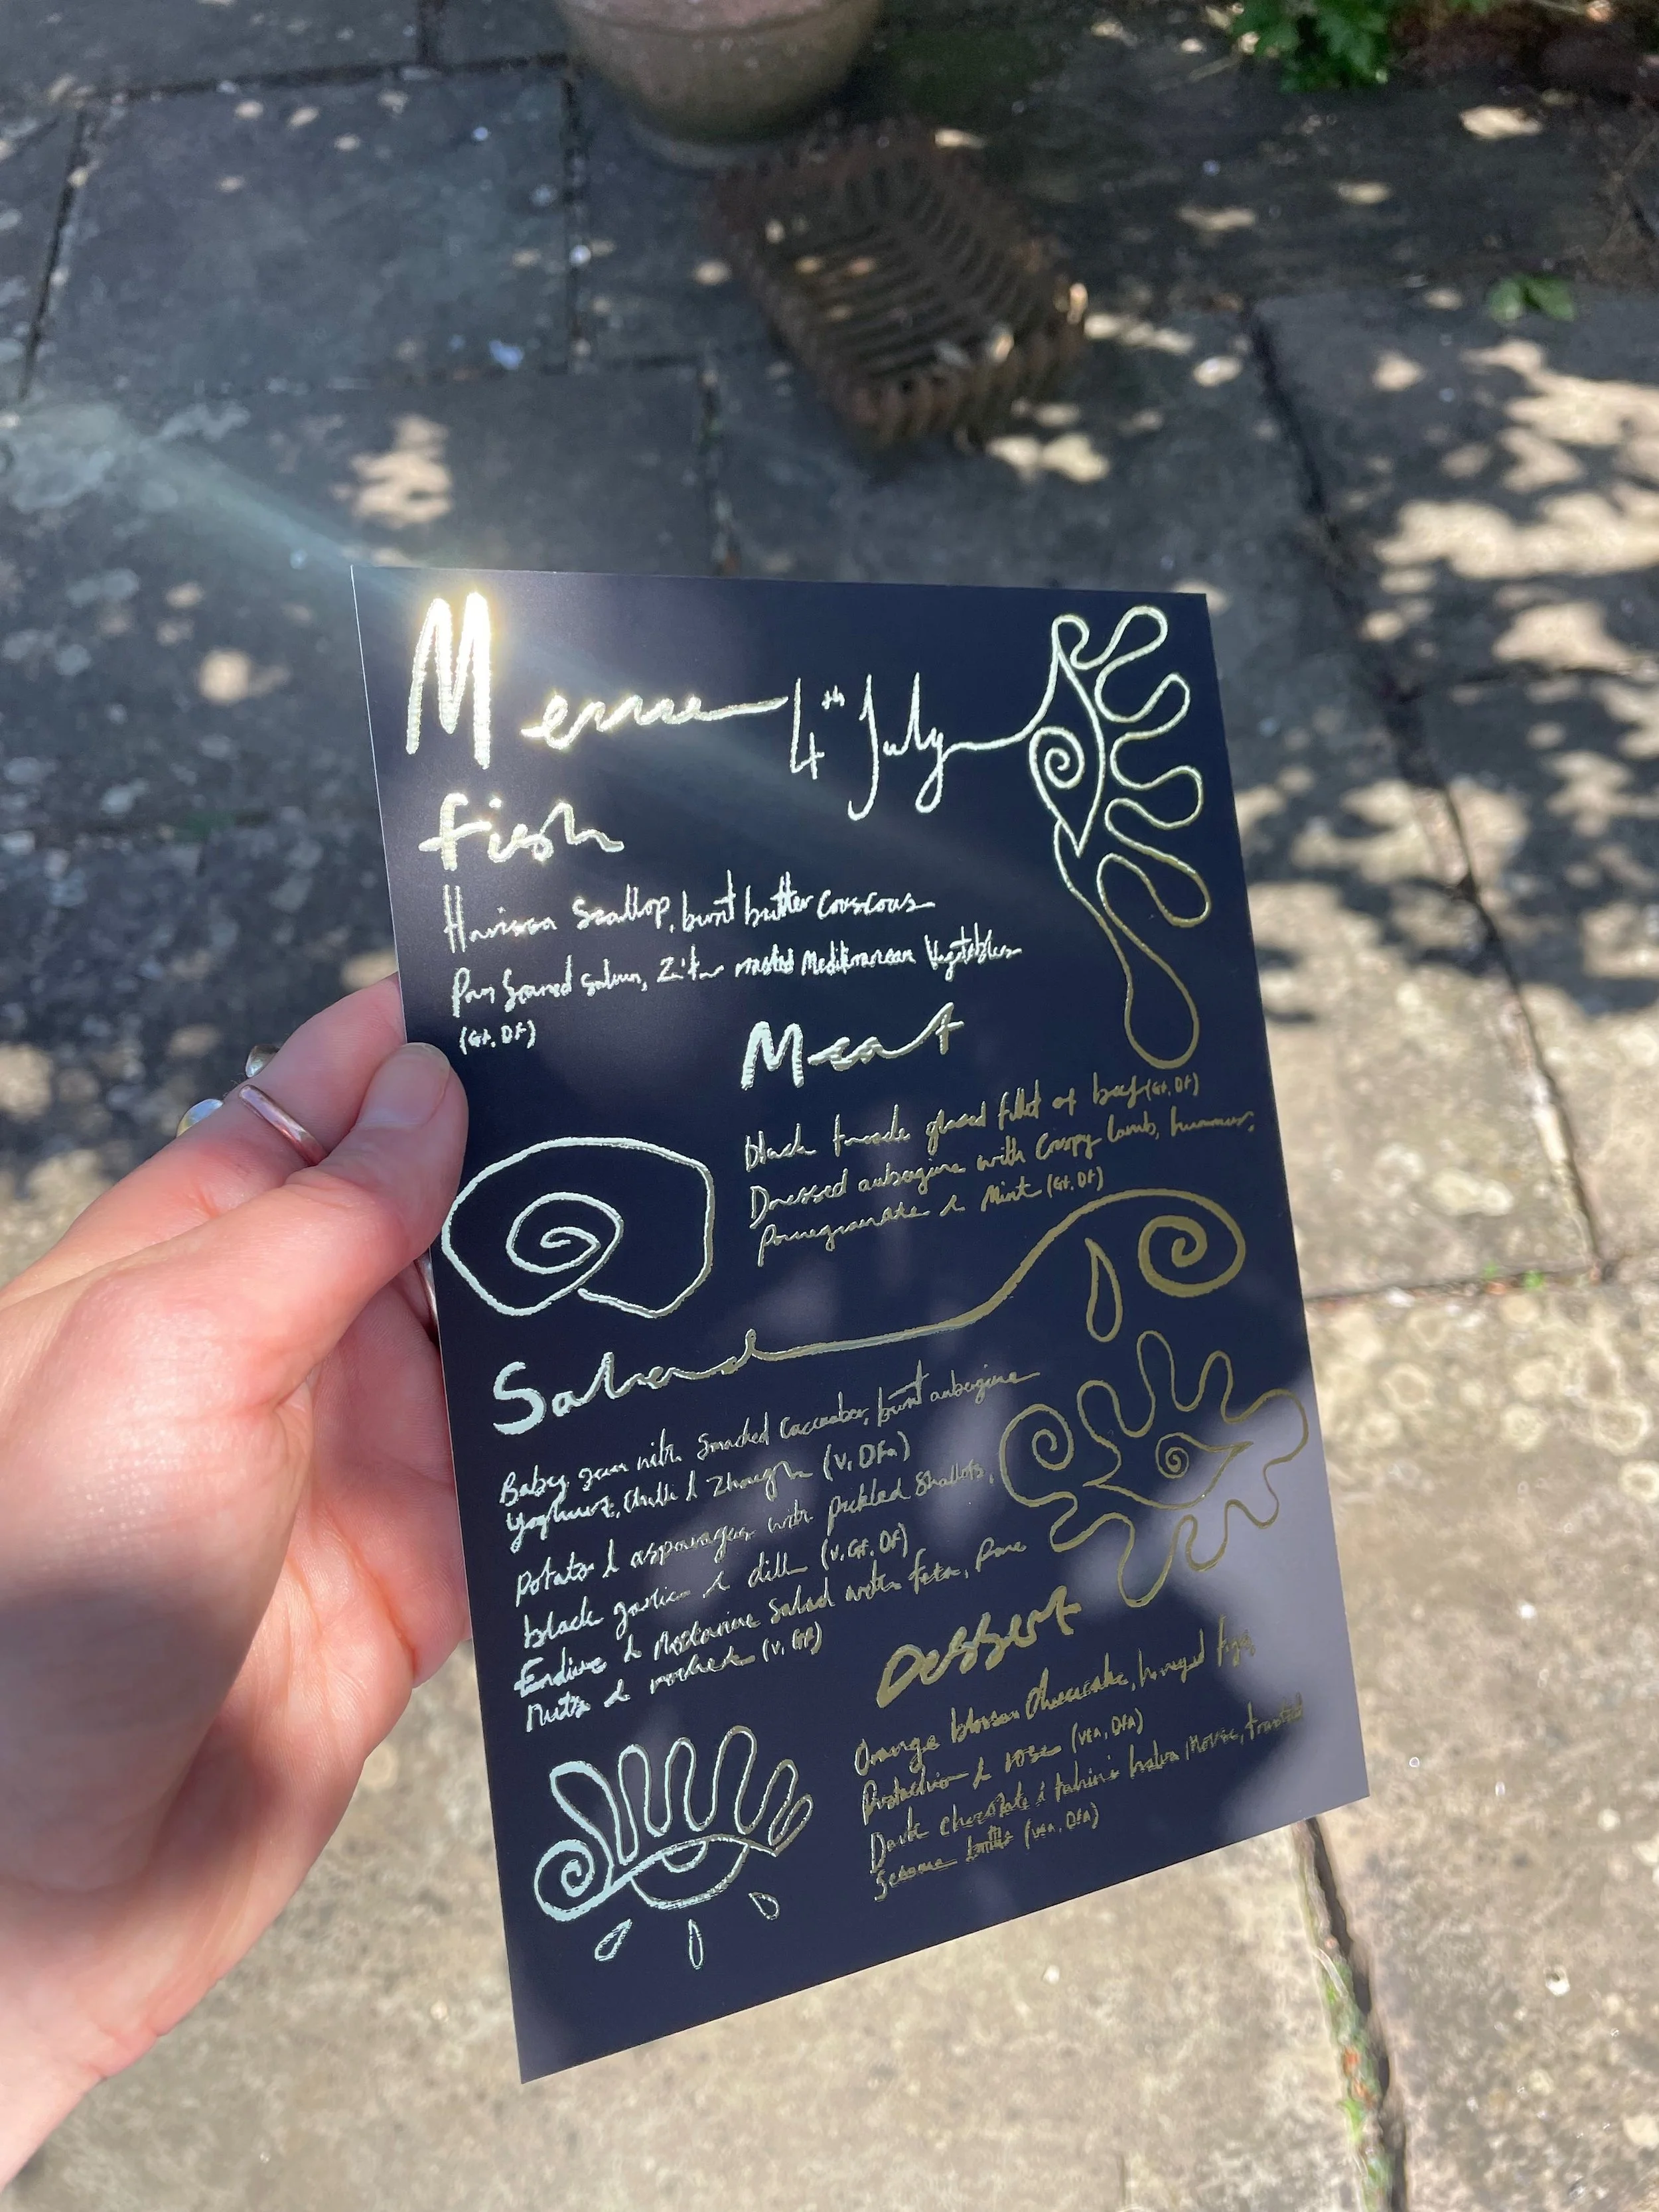 Menu 4th July
Fish
Harissa Scallop, burnt butter couscous
Pan Seared Salmon, Za'tar roasted Mediterranean Vegetables
(GF, DF)
Meat
black treacle glazed fillet of beef (GF, DF)
Dressed aubergine with Crispy lamb, hummus,
Pomegranate & Mint (GF, DF)
Salad
Baby gem with Smashed Cucumber, burnt aubergine
Yoghurt, Chilli & Zhough (V, DFA)
Potato & asparagus with pickled Shallots,
black garlic & dill (V, GF, DF)
Endive & Nectarine Salad with feta, Pine
Nuts & rocket (V, GF)
Dessert
Orange blossom Cheesecake, honeyed figs
Pistachio & rose (VEA, DFA)
Dark chocolate & tahini halva Mousse, toasted
Sesame brittle (VEA, DFA)